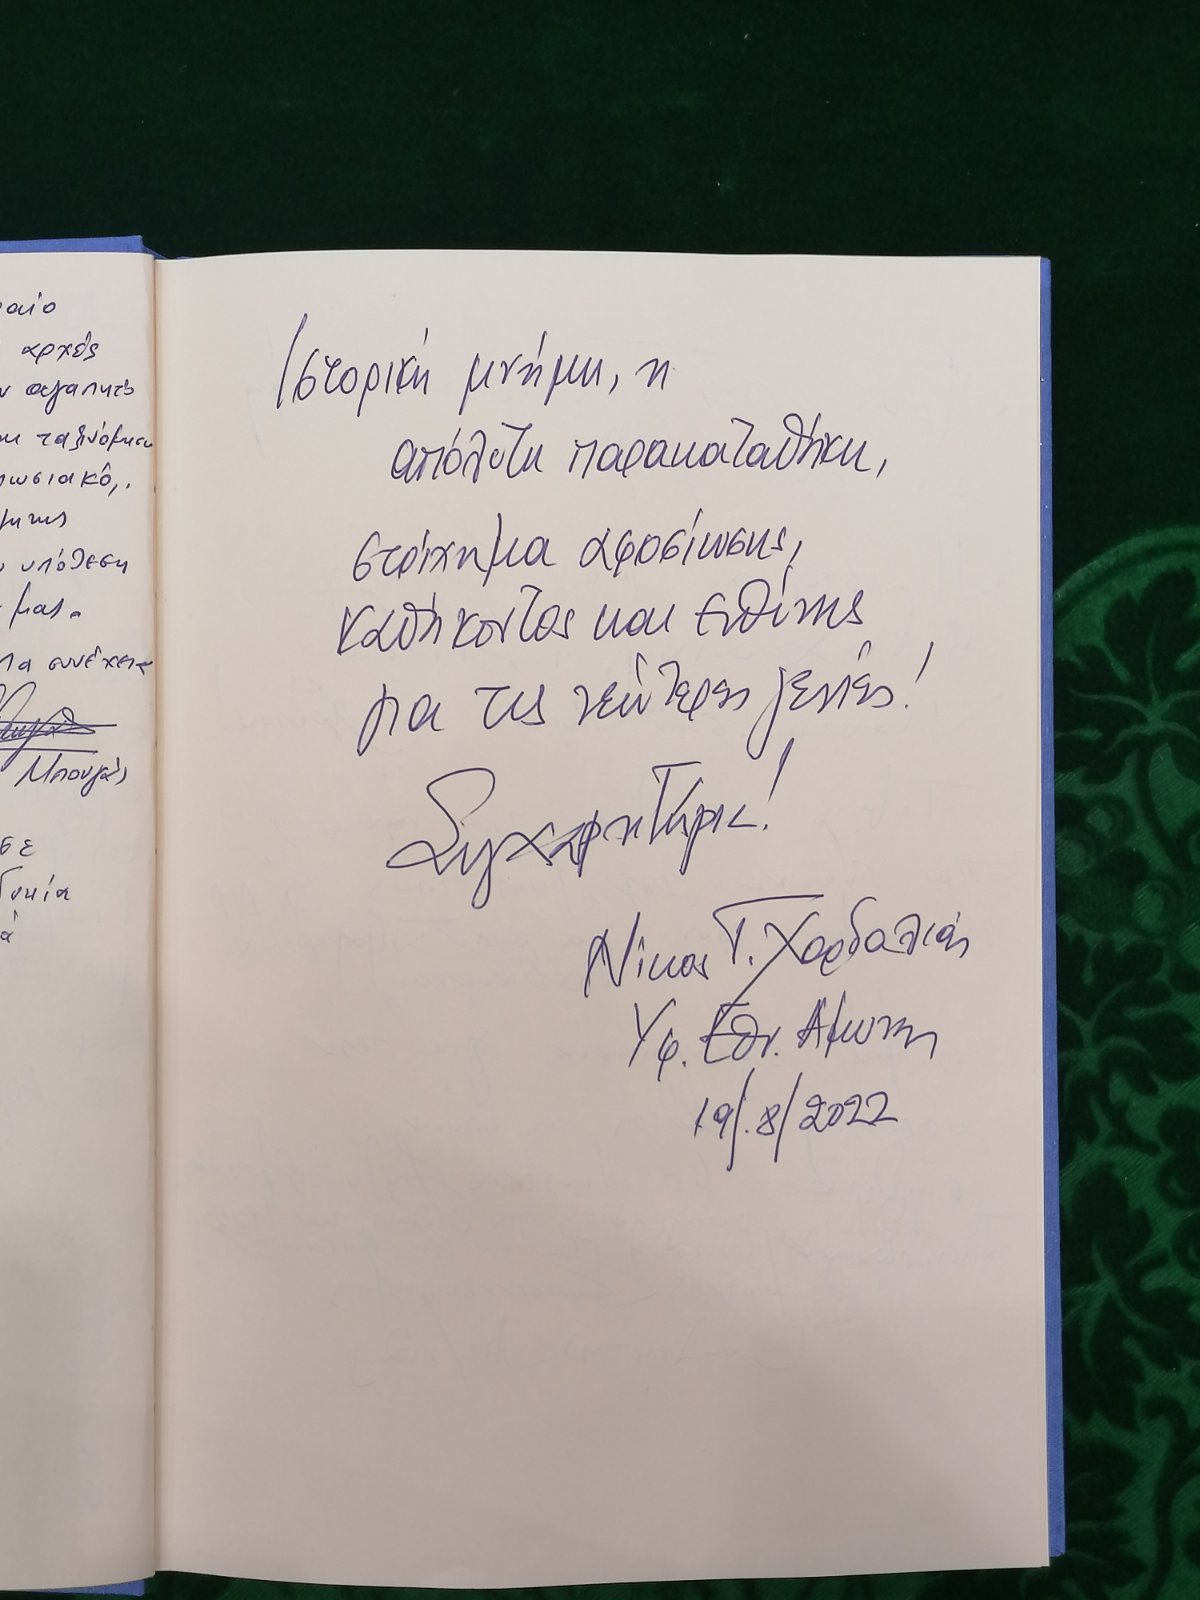 αρχές
αγαπητό
υπόθεση
μας.
συνέχεια
Μπουγάς
σε
Ιστορική μνήμη, η
απόλυτη παρακαταθήκη,
στοίχημα αφοσίωσης,
καθήκοντος και ευθύνης
για τις νεώτερες γενιές!
Συγχαρητήρια!
Νίκος Γ. Χαρδαλιάς
Υφ. Εθν. Αμύνης
19/.8/2022